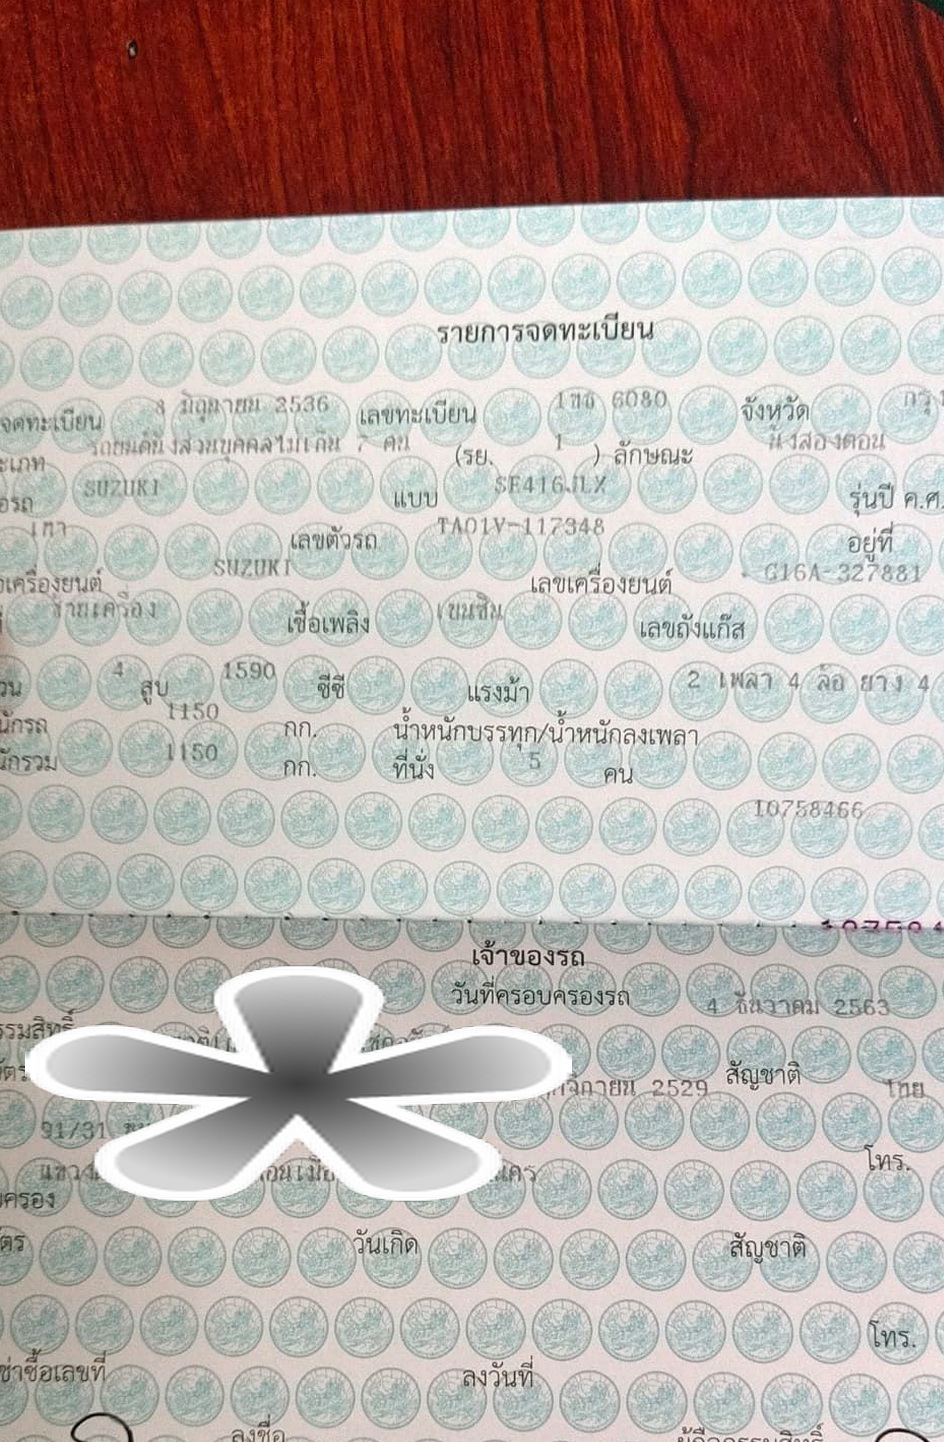 รายการจดทะเบียน
จดทะเบียน 8 มิถุนายน 2536 เลขทะเบียน 6080 จังหวัด
รถยนต์นั่งส่วนบุคคลไม่เกิน 7 คน (รย. 1 ) ลักษณะ นั่งสองตอน
SUZUKI แบบ SE416JLX รุ่นปี ค.ศ.
เทา เลขตัวรถ TA01V-117348 อยู่ที่
เครื่องยนต์ SUZUKI เลขเครื่องยนต์ G16A-327881
ซ้ายเครื่อง เชื้อเพลิง เบนซิน เลขถังแก๊ส
4 สูบ 1590 ซีซี แรงม้า 2 เพลา 4 ล้อ ยาง 4
1150 กก. น้ำหนักบรรทุก/น้ำหนักลงเพลา
1150 กก. ที่นั่ง 5 คน
10758466
เจ้าของรถ
วันที่ครอบครองรถ 4 ธันวาคม 2563
2529 สัญชาติ ไทย
91/31
โทร.
วันเกิด สัญชาติ
โทร.
ช่าซื้อเลขที่ ลงวันที่
ลงชื่อ